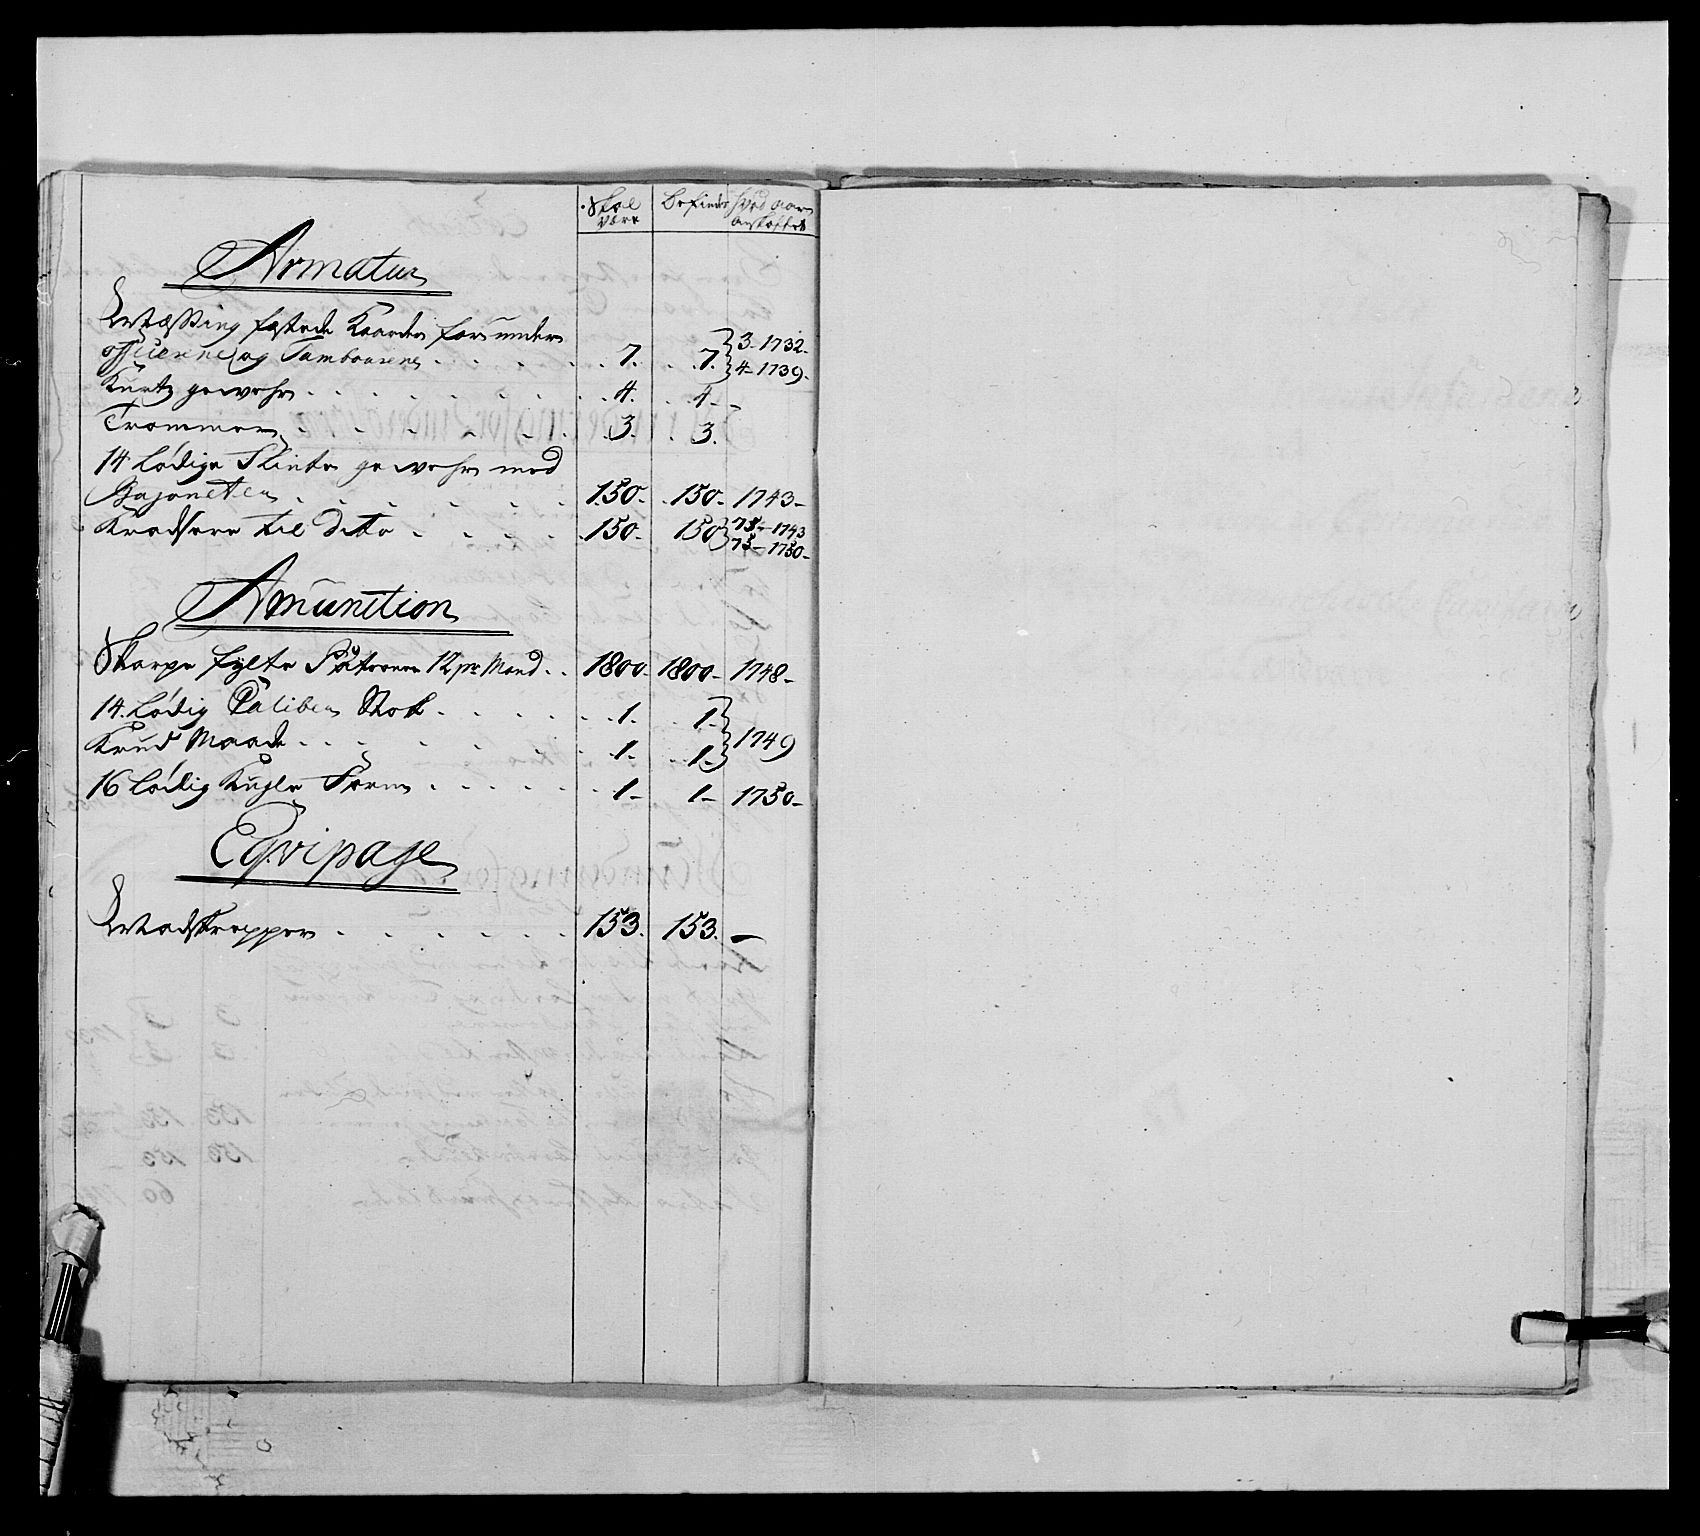 Skal være Befindes Hvad aar anskaffet
Armatur
Messing fæstede Kaarder for under
officererne og Tambourerne . . . . 7. 7. 3 - 1732. 4 - 1739.
Kurtz gewehr . . . . . . . 4. 4 -
Trommer . . . . . . . 3. 3.
14 Lødige Flinte gewehr med
Bajonetter . . . . . . 150. 150. 1743 -
Kradsere til Ditto . . . . 150. 150 75 - 1743 75 - 1750 -
Amunition
Skarpe fylte Patroner 12 pr Mand . . 1800. 1800. 1748 -
14. Lødig Caliber Stok . . . . . 1. 1.
Krud Maade . . . . . . . 1. 1. 1749
16 Lødig Kugle Form . . . . . 1 - 1 - 1750 -
Eqvipage
Madskrapper . . . . . . 153. 153. -